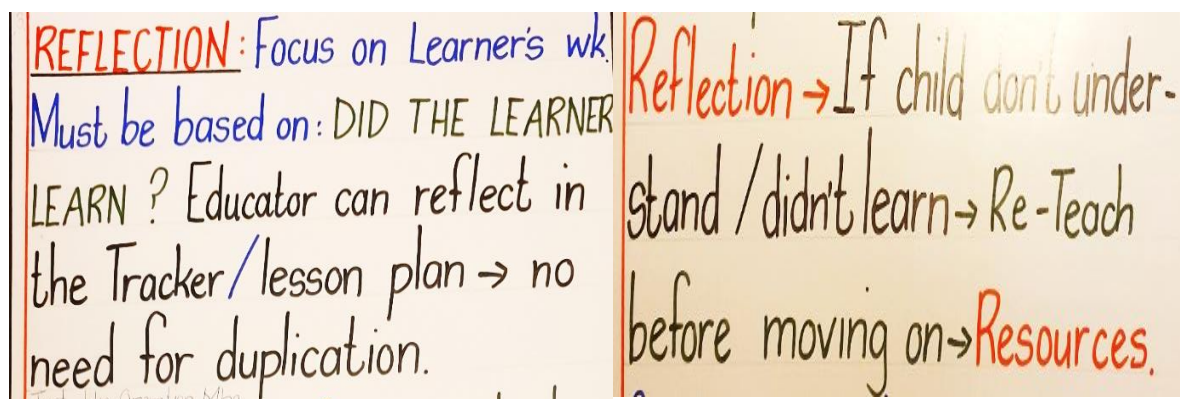 REFLECTION: Focus on Learner's wk.
Must be based on: DID THE LEARNER
LEARN? Educator can reflect in
the Tracker/lesson plan → no
need for duplication.
Reflection → If child don't under-
stand/didn't learn → Re-Teach
before moving on → Resources.